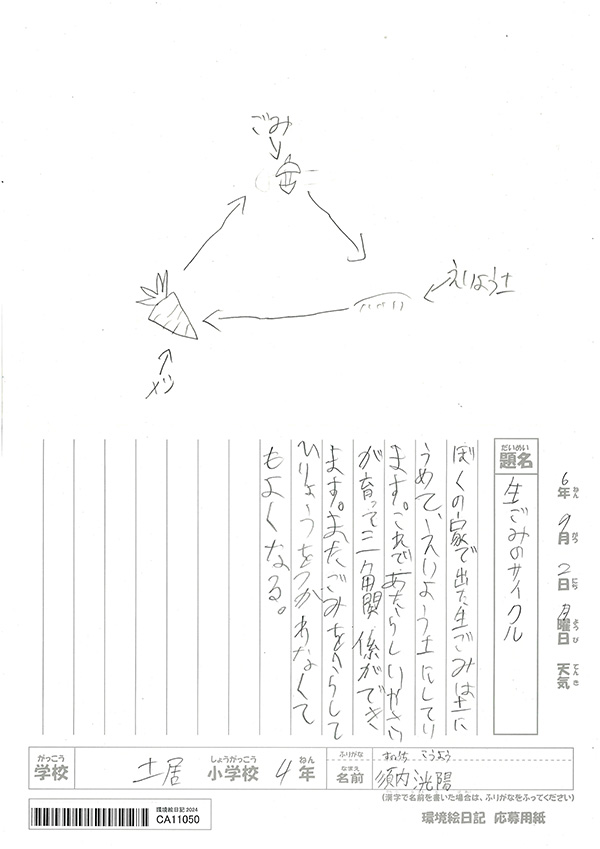 ごみ
えいよう土
6年 9月 2日 月曜日 天気
ねん がつ にち ようび てんき
だいめい
題名
生ごみのサイクル
ぼくの家で出た生ごみは土に
うめて、えいよう土にしてい
ます。これであたらしいやさい
が育って三角関係ができ
ます。またごみをへらして
ひりょうをつかわなくて
もよくなる。
がっこう しょうがっこう ねん
学校 土居 小学校 4年
ふりがな こうよう
なまえ
名前 須内 洸陽
(漢字で名前を書いた場合は、ふりがなをふってください)
環境絵日記 2024
CA11050
環境絵日記 応募用紙